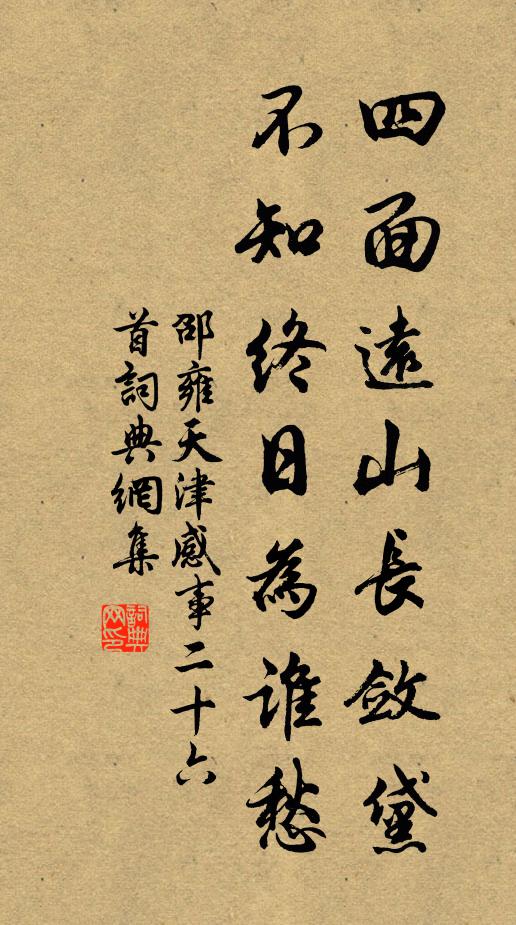 四面遠山長斂黛
不知終日為誰愁
邵雍天津感事二十六
首詞典網集
詞典网印